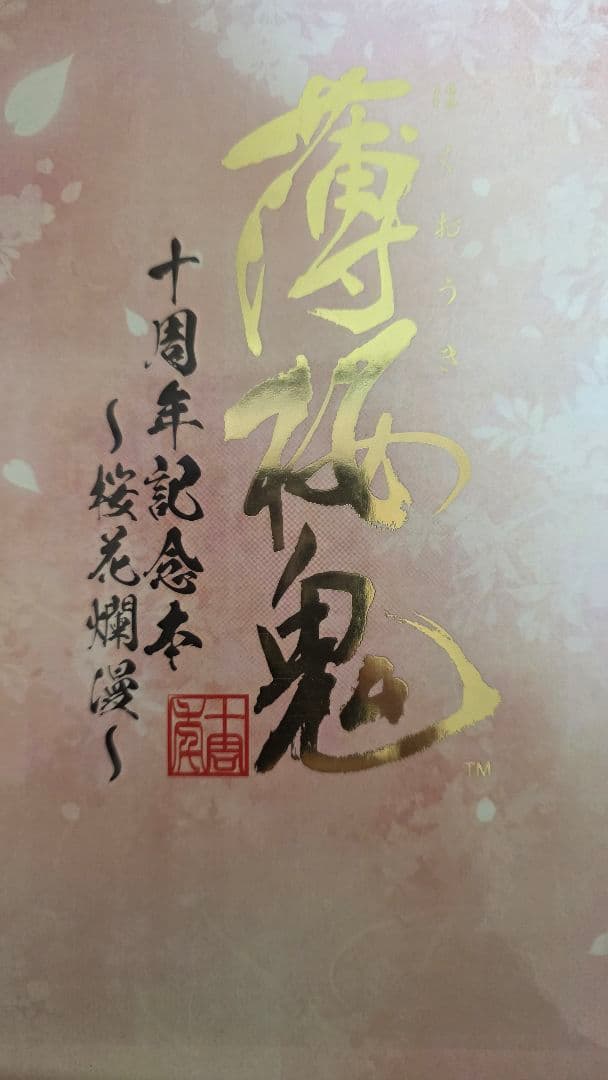 はくおうき
薄桜鬼
TM
十周年記念本
～桜花爛漫～
十周年